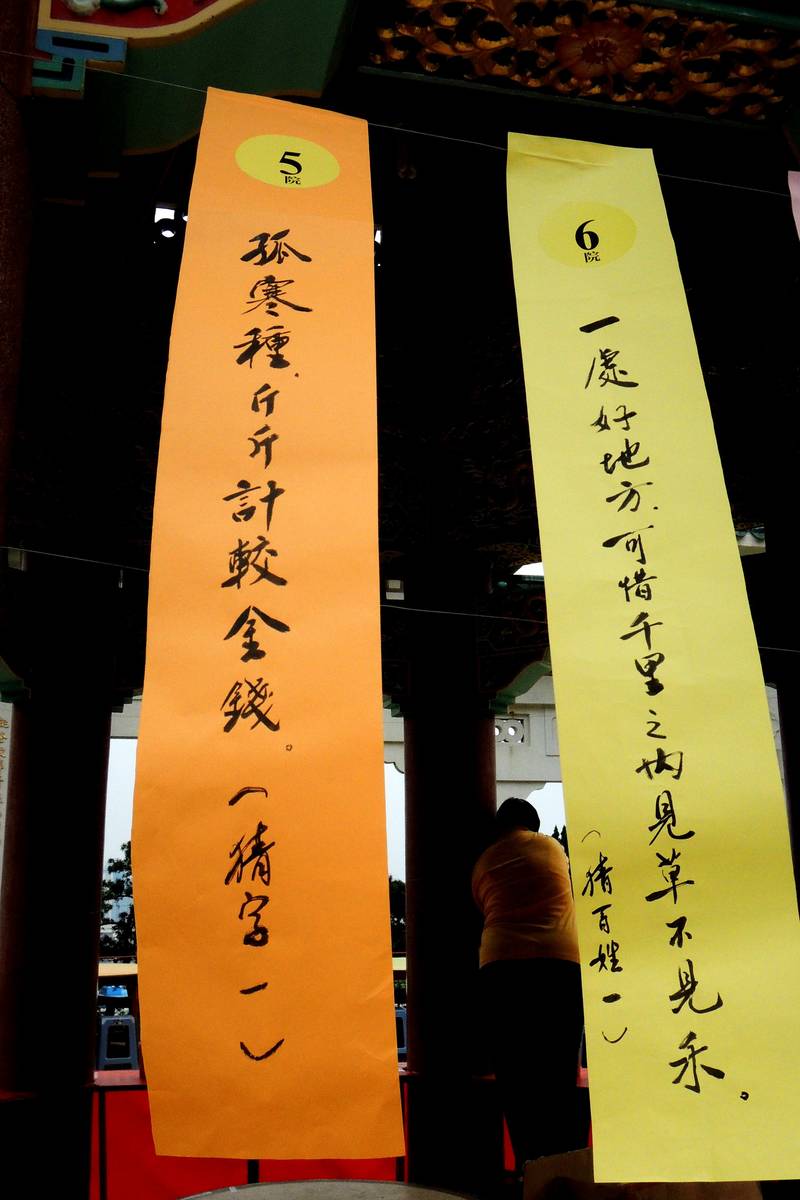 5
院
孤寒種、斤斤計較金錢。(猜字一)
6
院
一處好地方、可惜千里之內見草不見禾。
(猜百姓一)